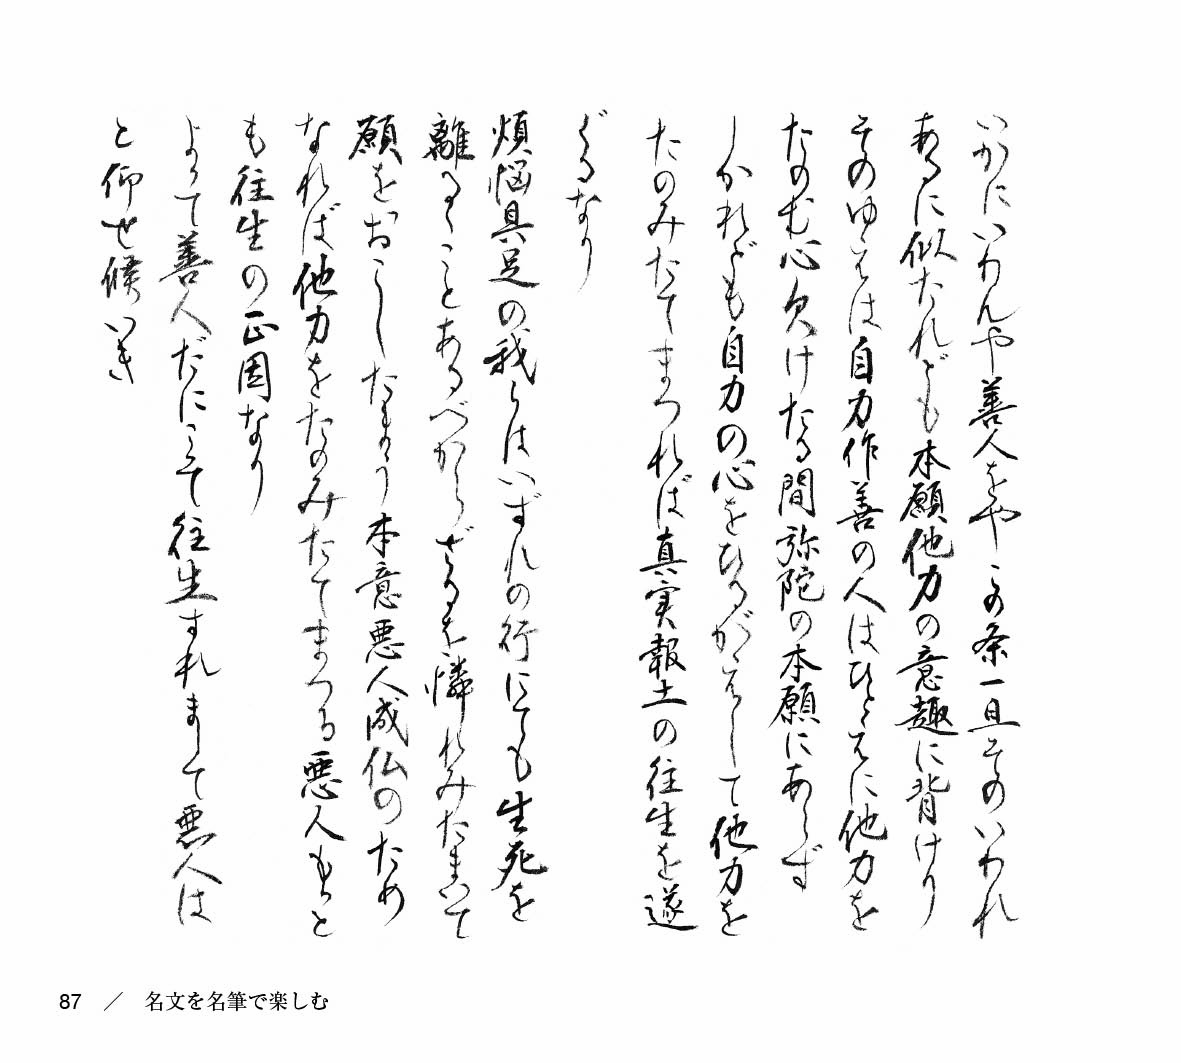 いかにいわんや善人をやこの条一旦そのいわれ
あるに似たれども本願他力の意趣に背けり
そのゆえは自力作善の人はひとえに他力を
たのむ心欠けたる間弥陀の本願にあらず
しかれども自力の心をひるがえして他力を
たのみたてまつれば真実報土の往生を遂
ぐるなり
煩悩具足の我らはいずれの行にても生死を
離るゝことあるべからざるを憐れみたまいて
願をおこしたまう本意悪人成仏のため
なれば他力をたのみたてまつる悪人もっと
も往生の正因なり
よって善人だにこそ往生すれまして悪人は
と仰せ候いき
87 ／ 名文を名筆で楽しむ